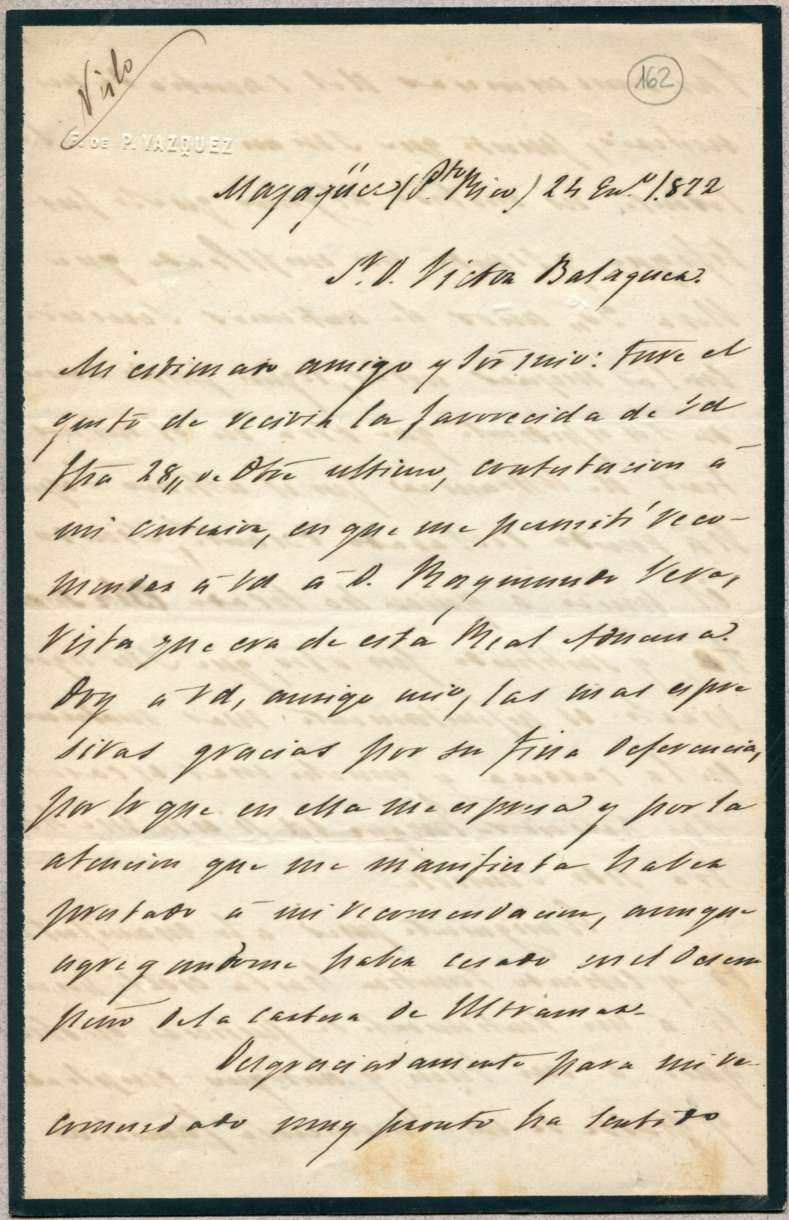 Visto
162
F. DE P. VAZQUEZ
Mayagüez (Pto Rico) 24 En.o /.872
Sr. D. Victor Balaguer.
Mi estimado amigo y Sór mio: Tuve el
gusto de recivir la favorecida de Vd
fha 28,, de Obre ultimo, contestacion á
mi anterior, en que me permití reco-
mendar á Vd á D. Raymundo Vera,
Vista que era de esta Real Aduana.
Doy á Vd, amigo mio, las mas espre
sivas gracias por su fina deferencia,
por lo que en ella me espresa y por la
atencion que me manifiesta haber
prestado á mi recomendacion, aunque
agregandome haber cesado en el desem
peño de la cartera de Ultramar.
Desgraciadamente para mi re-
comendado muy pronto ha sentido